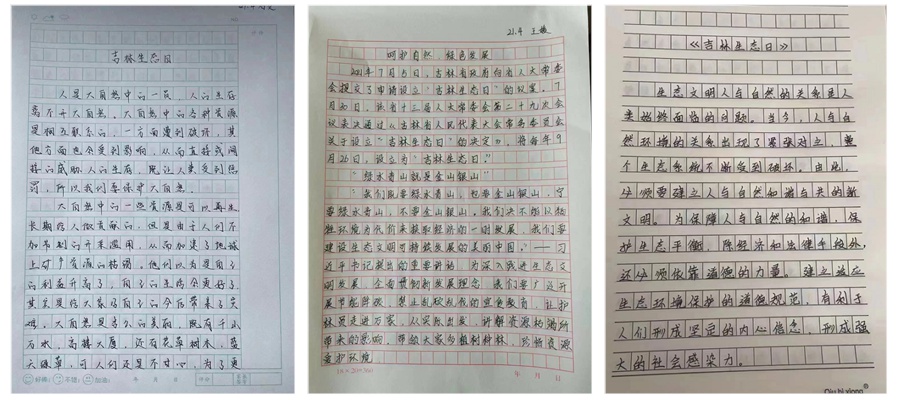 吉林生态日
人是大自然中的一员，人的生存
离不开大自然，大自然中的各种资源
是相互联系的，一方面遭到破坏，其
他方面也会受到影响，从而直接或间
接的威胁人的生存，
罚，所以我们要保护大自然。
大自然中的一些资源是可以再生
长期给人做贡献的，但是由于人们不
加节制的开采滥用，从而加速了地球
上矿产资源的枯竭。他们以为是自己
的利益升高了，自己的生活会更好了
其实是给大家与自己的今后带来了灾
难，大自然是多么的美丽，既有千山
万水，高楼大厦，还有花草树木，蓝
天绿草，可人们还是不甘心，为了更
21.4 王
呵护自然 绿色发展
2021年7月15日，吉林省政府向省人大常委
会提交了申请设立“吉林生态日”的议案。7
月30日，该省十三届人大常委会第二十九次会
议表决通过《吉林省人民代表大会常务委员会
关于设立“吉林生态日”的决定》，将每年9
月26日，设立为“吉林生态日”
“绿水青山就是金山银山”
“我们既要绿水青山，也要金山银山，宁
要绿水青山，不要金山银山。我们决不能以牺
牲环境为代价来获取经济的一时发展，我们要
建设生态文明可持续发展的美丽中国”——习
近平书记提出的重要讲话，为深入践进生态文
明发展，全面贯彻新发展理念，我们要广泛开
展节能降碳，禁止乱砍乱伐的宣传教育，让护
林员走进万家，从实际出发，讲解资源枯竭所
带来的影响，带领大家今植树种林，珍惜资源
爱护环境。
《吉林生态日》
生态文明人与自然的关系是人
类始终面临的问题。当今，人与自
然环境的关系出现了紧张对立，整
个生态系统不断受到破坏。由此，
必须要建立人与自然和谐与共的新
文明。为保障人与自然的和谐，保
护生态平衡，除经济和法律手段外，
还必须依靠道德的力量。建立适应
生态环境保护的道德规范，有利于
人们形成坚定的内心信念，形成强
大的社会感染力。